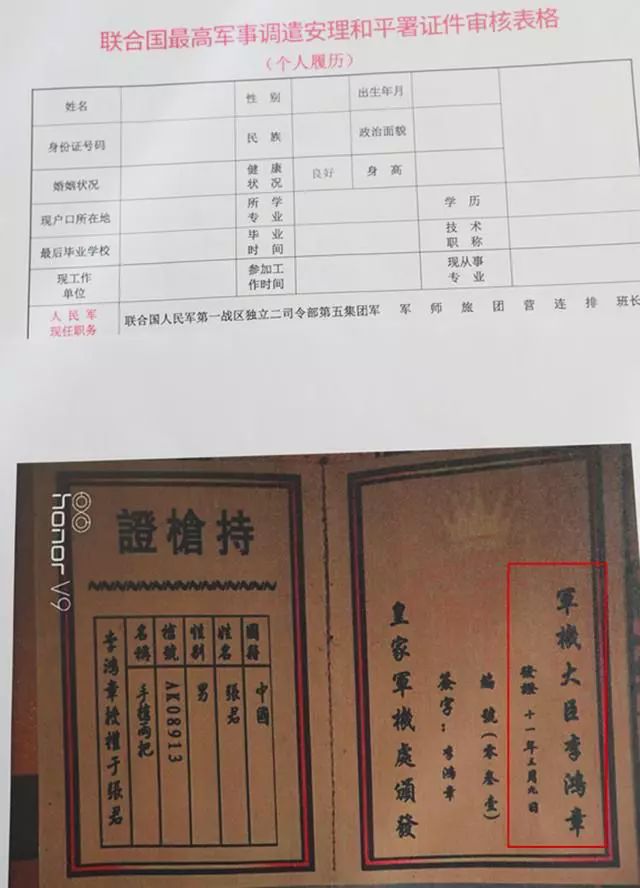 联合国最高军事调遣安理和平署证件审核表格
（个人履历）
姓名 性别 出生年月
身份证号码 民族 政治面貌
婚姻状况 健康状况 良好 身高
现户口所在地 所学专业 学历
最后毕业学校 毕业时间 技术职称
现工作单位 参加工作时间 现从事专业
人民军现任职务 联合国人民军第一战区独立二司令部第五集团军 军 师 旅 团 营 连 排 班长
honor V9
持槍證
國籍 中國
姓名 張君
性别 男
槍號 AK08913
名稱 手槍兩把
李鴻章授權于張君
軍機大臣李鴻章
發證 十一年三月九日
編號(零叁壹)
簽字：李鴻章
皇家軍機處頒發